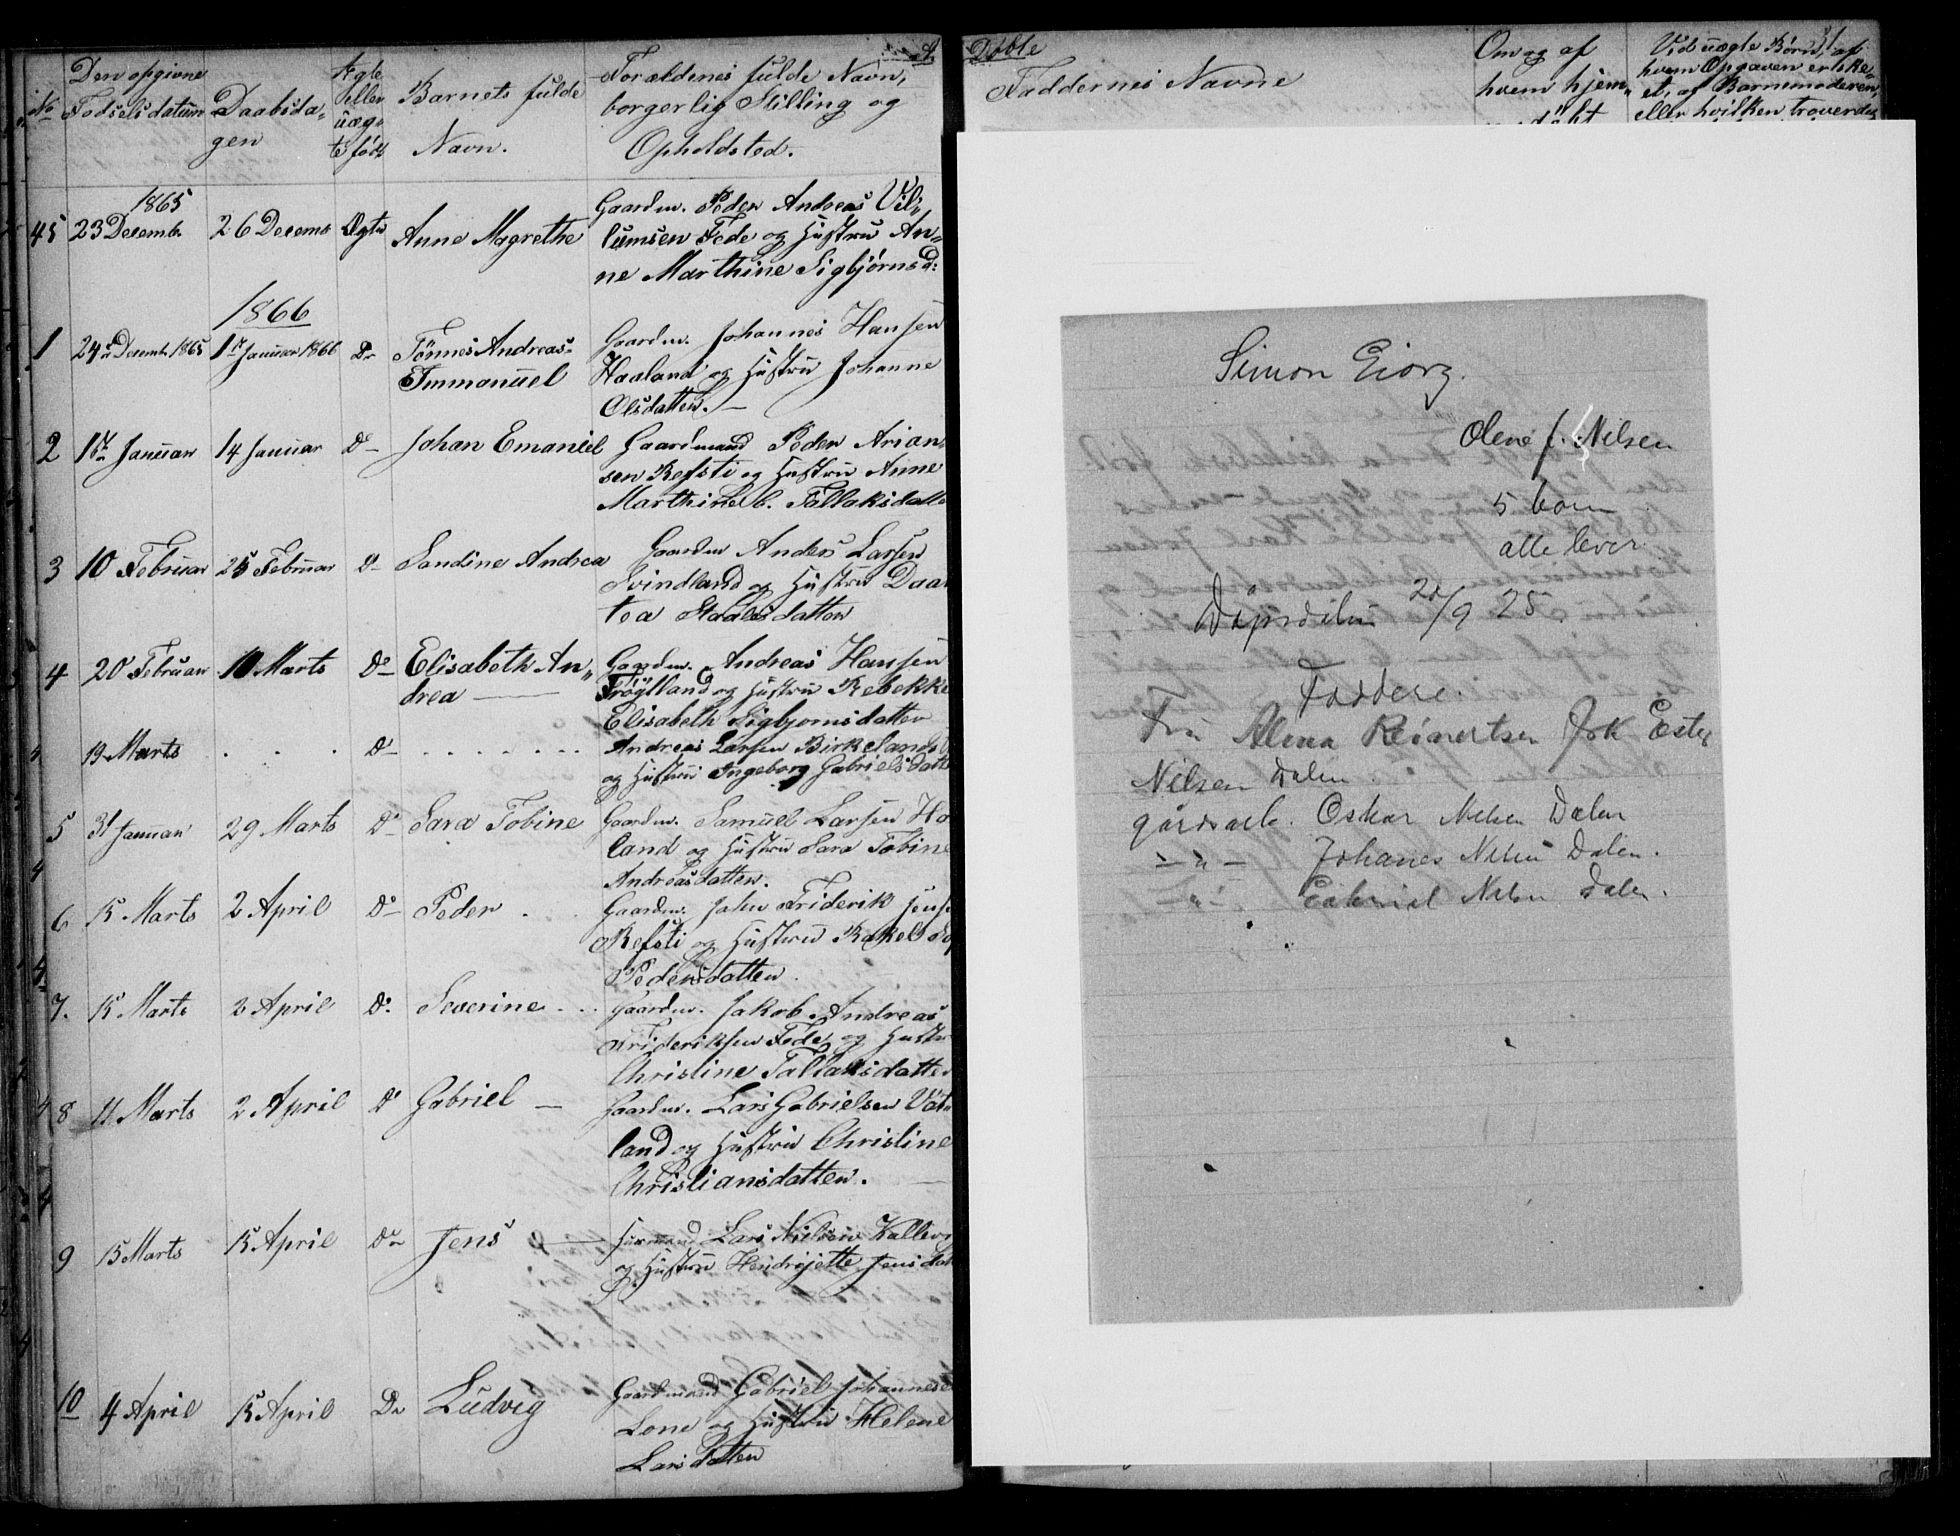 No
Den opgivne
Fødselsdatum
Daabsda-
gen
Ægte
eller
uæg-
te født
Barnets fulde
Navn.
Forældrenes fulde Navn,
borgerlig Stilling og
Opholdsted.
1865
45 23 Decemb. 26 Decemb Ægte Anne Magrethe
Gaardm. Peder Andreas Vil-
lumsen Fede og Hustru An-
ne Marthine Sigbjørnsd:
1866
1 24 Decemb. 1865 1 Januar 1866 Do Tönnes Andreas-
Emmanuel
Gaardm. Johannes Hansen
Haaland og Hustru Johanne
Olsdatter. —
2 1 Januar 14 Januar Do Johan Emanuel
Gaardmand Peder Arian-
sen Refsti og Hustru Anne
Marthine b. Tallaksdatte
3 10 Februar 25 Februar Do Sandine Andrea
Gaardm Anders Larsen
Svindland og Hustru
4 20 Februar 10 Marts Do Elisabeth An-
drea
Gaardm. Andreas Hansen
Frøÿlland og Hustru Rebekke
Elisabeth Sigbjornsdatter
19 Marts . . . Do . . . . . . .
Andreas Larsen Birkeland
og Hustru Ingeborg Gabrielsdatte
5 31 Januar 29 Marts Do Sara Tobine
Gaardm. Samuel Larsen Ho
land og Hustru Sara Tobine
Andreasdatter.
6 15 Marts 2 April Do Peder . . .
Gaardm. John Friderik Jens
Refsti og Hustru Rakel
Pedersdatter.
7. 15 Marts 2 April Do. Severine . . .
Gaardm. Jakob Andreas
Frideriksen Fede og Hustr
Christine Tallaksdatte
8 11 Marts 2 April Do Gabriel —
Gaardm. Lars Gabrielsen Vat-
land og Hustru Christine
Christiansdatter.
9 15 Marts 15 April Do Jens —
Lars Nielsen
og Hustru Hendrijette Jensdat
10 4 April 15 April Do Ludvig
Gaardmand Gabriel Johannese
Lone og Hustru Helene
Larsdatter
Døbte
Faddernes Navne
Om og af
hvem hjem-
Vid uægte Børn, af
hvem Opgaven er ske-
et, af Barnmoderen,
eller hvilken troverdig
Simon Eiorg.
Olene J. Nilsen
5 barn
alle lever
9 25
Faddere.
Fru Alma Reinertsen Frk Ester
Nilsen Dalen.
gårdarb. Oskar Nilsen Dalen
— " — Johanes Nilsen Dalen.
— " — Gabriel Nilsen Dalen.